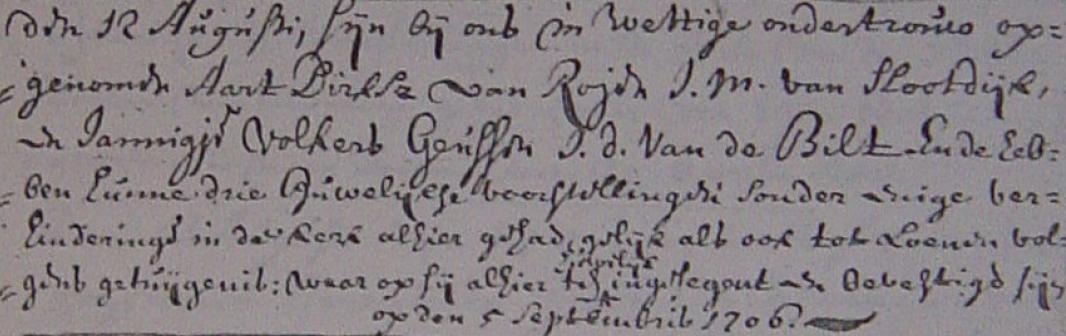 den 12 Augusti, sijn bij ons in wettige ondertrouw op=
genomen Aart Dirksz van Rojen J. M. van Slootdijk,
en Jannigje Volkers Geussen J. d. Van de Bilt Ende heb=
ben hunne drie Huwelijkse voorstellingen sonder enige ver=
hinderinge in de kerk alhier gehad, gelijk als ook tot Loenen vol=
gens getuijgenis: waar op sij alhier ingesegent en bevestigd sijn
op den 5 Septembris 1706.